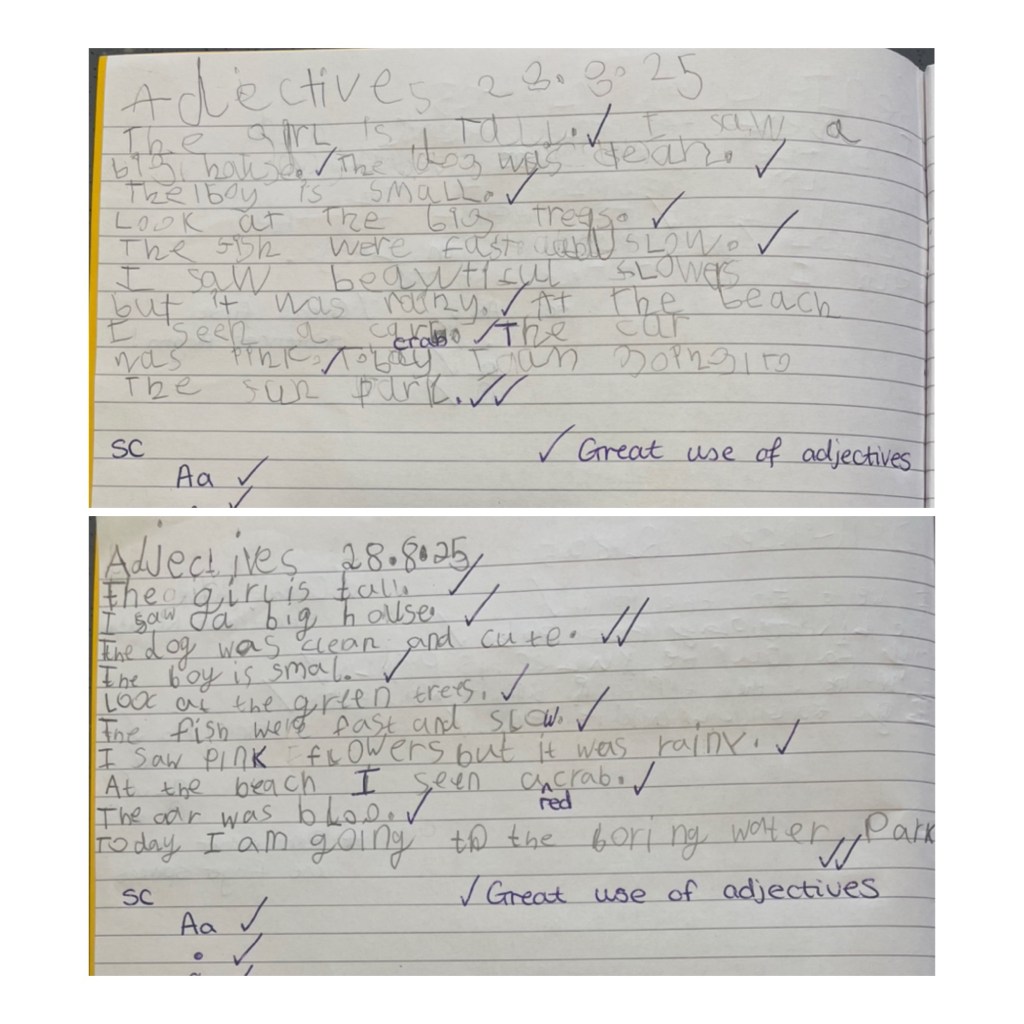 Adjectives 28.8.25
The girl is Tall. I saw a
big house. The dog was clean.
The boy is smaLL.
Look at The big Trees.
The fish were fast and sLow.
I saw beautiful flowers
but it was rainy. At The beach
I seen a
crab
The car
was Pink. Today I am going to
The sun park.
SC
Great use of adjectives
Aa
Adjectives 28.8.25
the girl is tall.
I saw a big house.
The dog was clean and cute.
The boy is smal.
Look at the green trees.
The fish were fast and slow.
I saw pink flowers but it was rainy.
At the beach I seen a crab.
red
The car was bloo.
Today I am going to the boring water Park
SC
Great use of adjectives
Aa